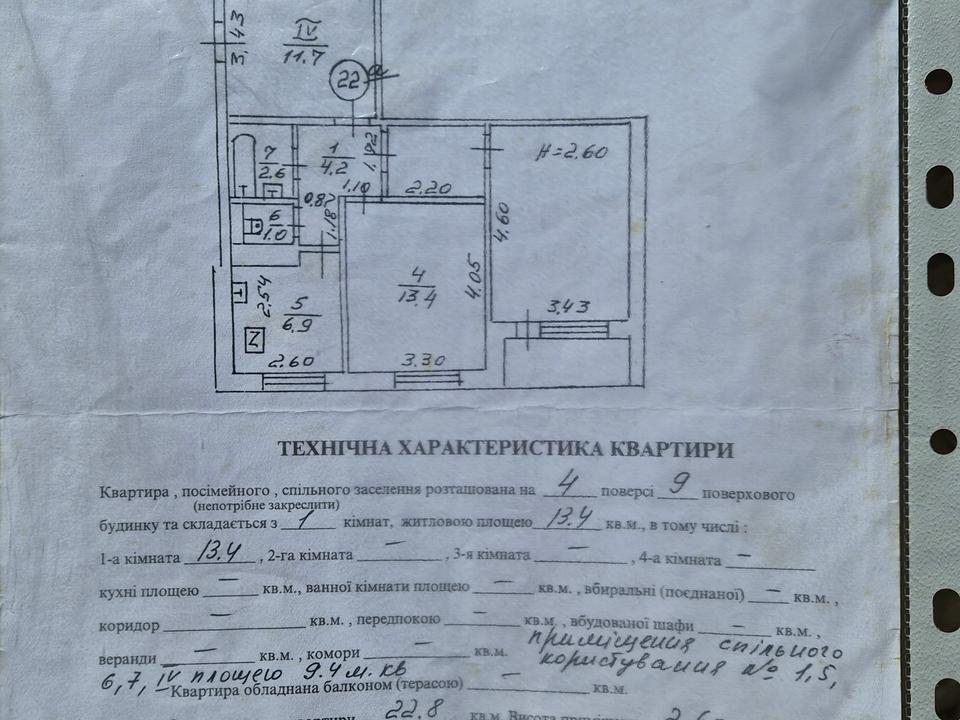 3.43
IV
11.7
22
7
2.6
1
4.2
1.92
1.10
2.20
H=2.60
0.87
1.18
6
1.0
4.60
2.54
5
6.9
4
13.4
4.05
3.43
2.60
3.30
ТЕХНІЧНА ХАРАКТЕРИСТИКА КВАРТИРИ
Квартира , посімейного , спільного заселення розташована на 4 поверсі 9 поверхового
(непотрібне закреслити)
будинку та складається з 1 кімнат, житловою площею 13.4 кв.м., в тому числі :
1-а кімната 13.4 , 2-га кімната — , 3-я кімната — , 4-а кімната —
кухні площею — кв.м., ванної кімнати площею — кв.м. , вбиральні (поєднаної) — кв.м. ,
коридор — кв.м. , передпокою — кв.м. , вбудованої шафи — кв.м. ,
веранди — кв.м. , комори — кв.м. приміщення спільного
користування № 1,5,
6,7, IV площею 9.4 м.кв
Квартира обладнана балконом (терасою) — кв.м.
22.8 кв.м.